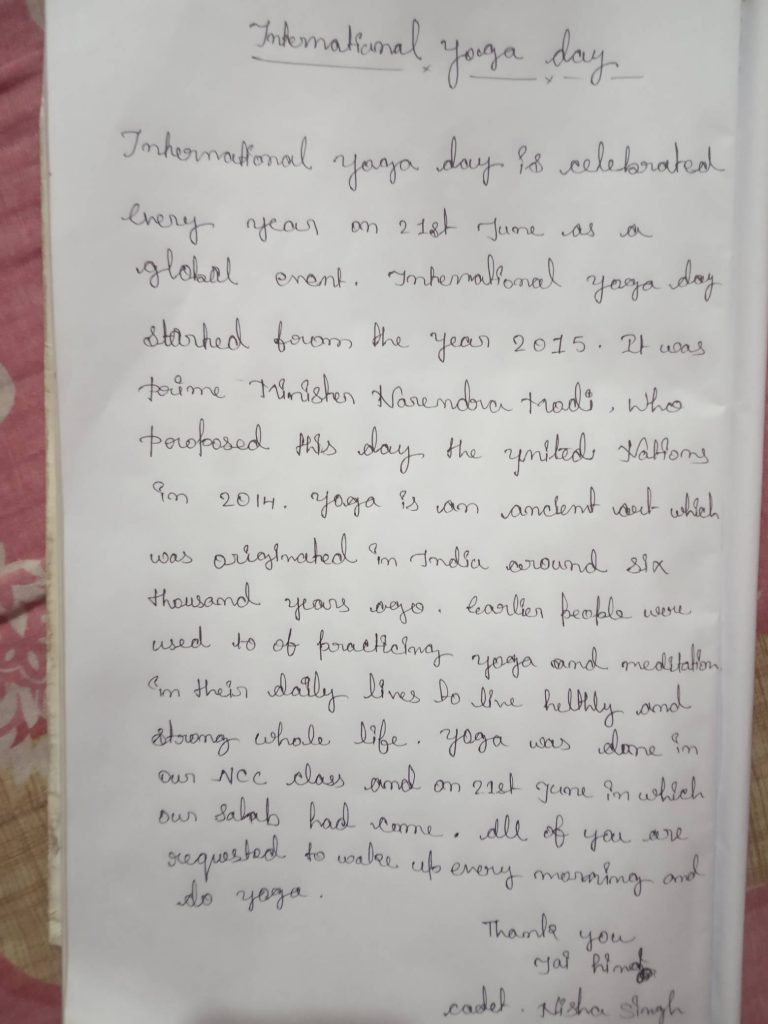 International yoga day
International yoga day is celebrated
every year on 21st June as a
global event. International yoga day
started from the year 2015. It was
prime Minister Narendra Modi, who
proposed this day the United Nations
in 2014. yoga is an ancient art which
was originated in India around six
thousand years ago. Earlier people were
used to of practicing yoga and meditation
in their daily lives to live helthly and
strong whole life. yoga was done in
our NCC class and on 21st June in which
our Sahab had come. All of you are
requested to wake up every morning and
do yoga.
Thank you
Jai hind
cadet. Nisha Singh